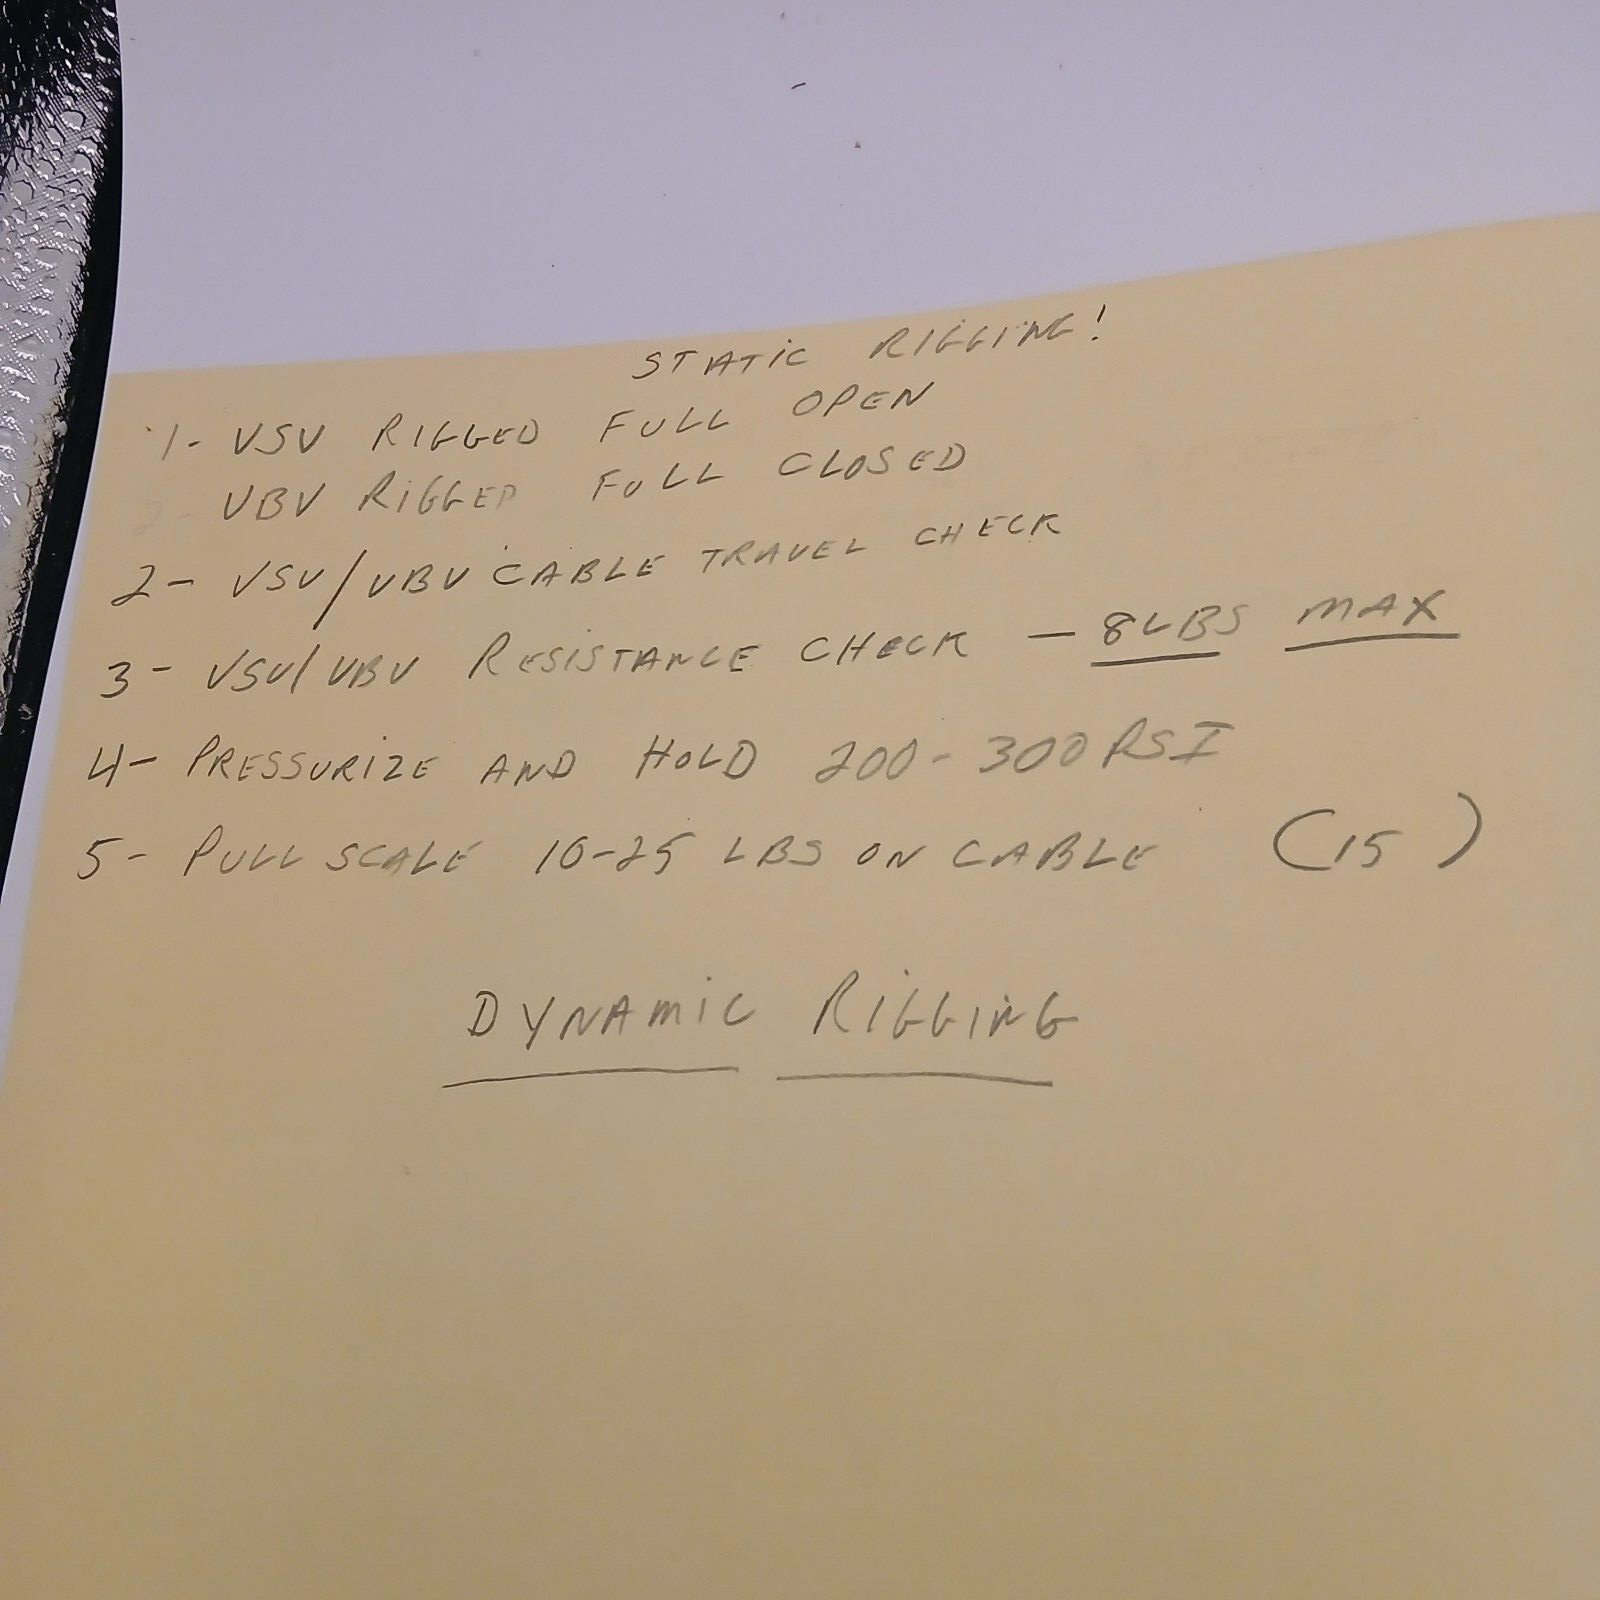 STATIC RIGGING!
1- VSV RIGGED FULL OPEN
2- VBV RIGGED FULL CLOSED
2- VSV/VBV CABLE TRAVEL CHECK
3- VSV/VBV RESISTANCE CHECK - 8 LBS MAX
4- PRESSURIZE AND HOLD 200-300 PSI
5- PULL SCALE 10-25 LBS ON CABLE (15)
DYNAMIC RIGGING